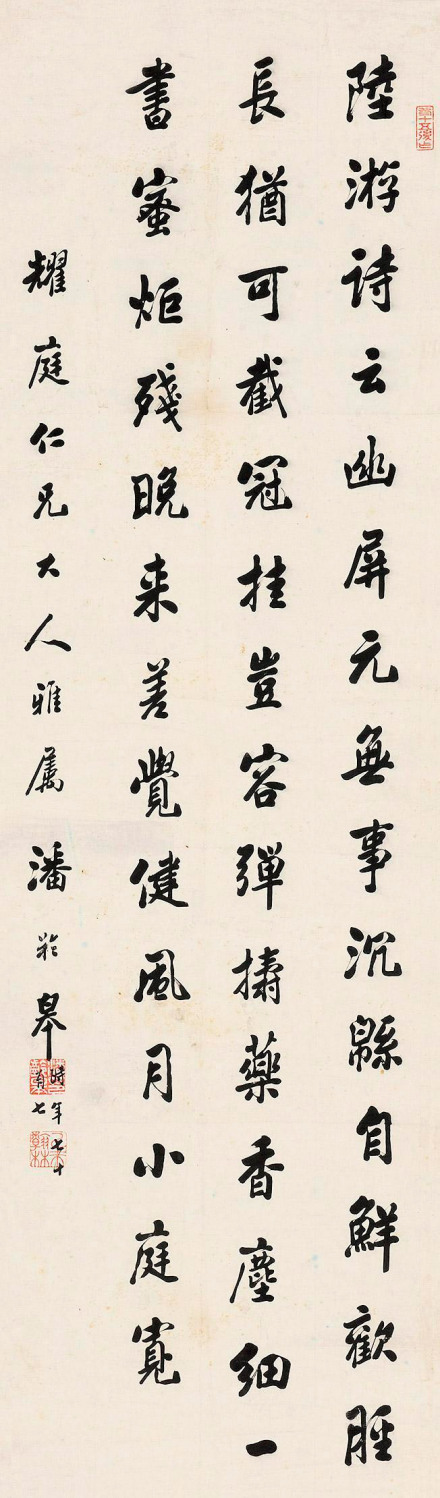 陸游詩云幽屏元無事沉緜自鮮歡脛
長猶可截冠挂豈容彈擣藥香塵細一
書蜜炬殘晚来差覺健風月小庭寬
耀庭仁兄大人雅属 潘齡皋
時年七十有七